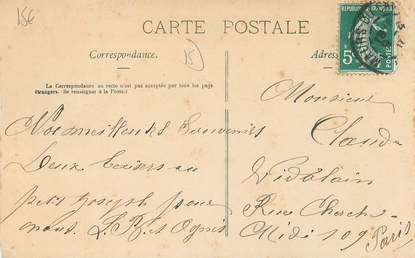 15€
CARTE POSTALE
15
Correspondance.
La Correspondance au recto n'est pas acceptée par tous les pays
étrangers. (Se renseigner à la Poste).
Nos meilleurs souvenirs
Deux baisers au
petit Joseph pour
nous. L. R. et Agnès
REPUBLIQUE
5c
Monsieur
Claude
Vidalain
Rue Cherche-
Midi 109 Paris